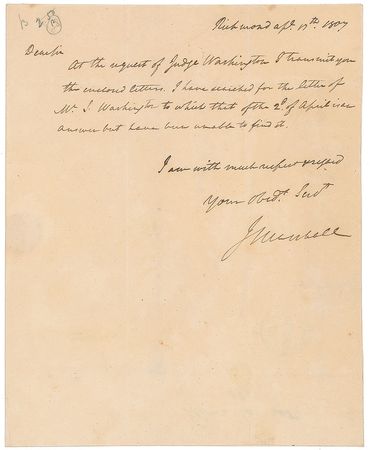 B 28 (3)
Richmond apl. 17th. 1827
Dear Sir
At the request of Judge Washington I transmit you
the enclosed letters. I have searched for the letter of
Mr. L. Washington to which that of the 2d. of April is an
answer but have been unable to find it.
I am with much respect & regard
Your Obedt. Servt
J Marshall